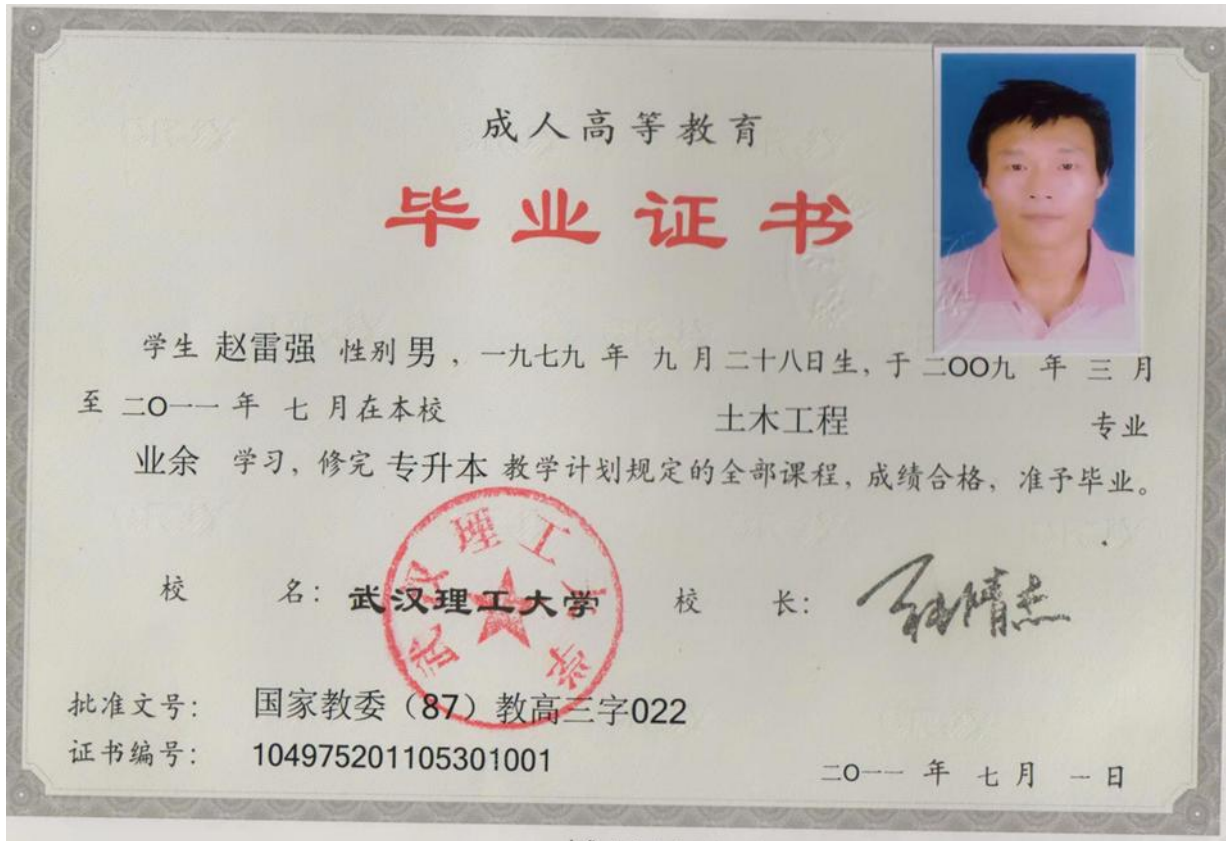 成人高等教育
毕业证书
学生 赵雷强 性别 男 ，一九七九 年 九 月 二十八日生，于 二OO九 年 三 月
至 二O一一 年 七 月在本校 土木工程 专业
业余 学习，修完 专升本 教学计划规定的全部课程，成绩合格，准予毕业。
校 名：武汉理工大学 校 长：
武汉理工大学
批准文号： 国家教委（87）教高三字022
证书编号： 104975201105301001
二O一一 年 七 月 一 日